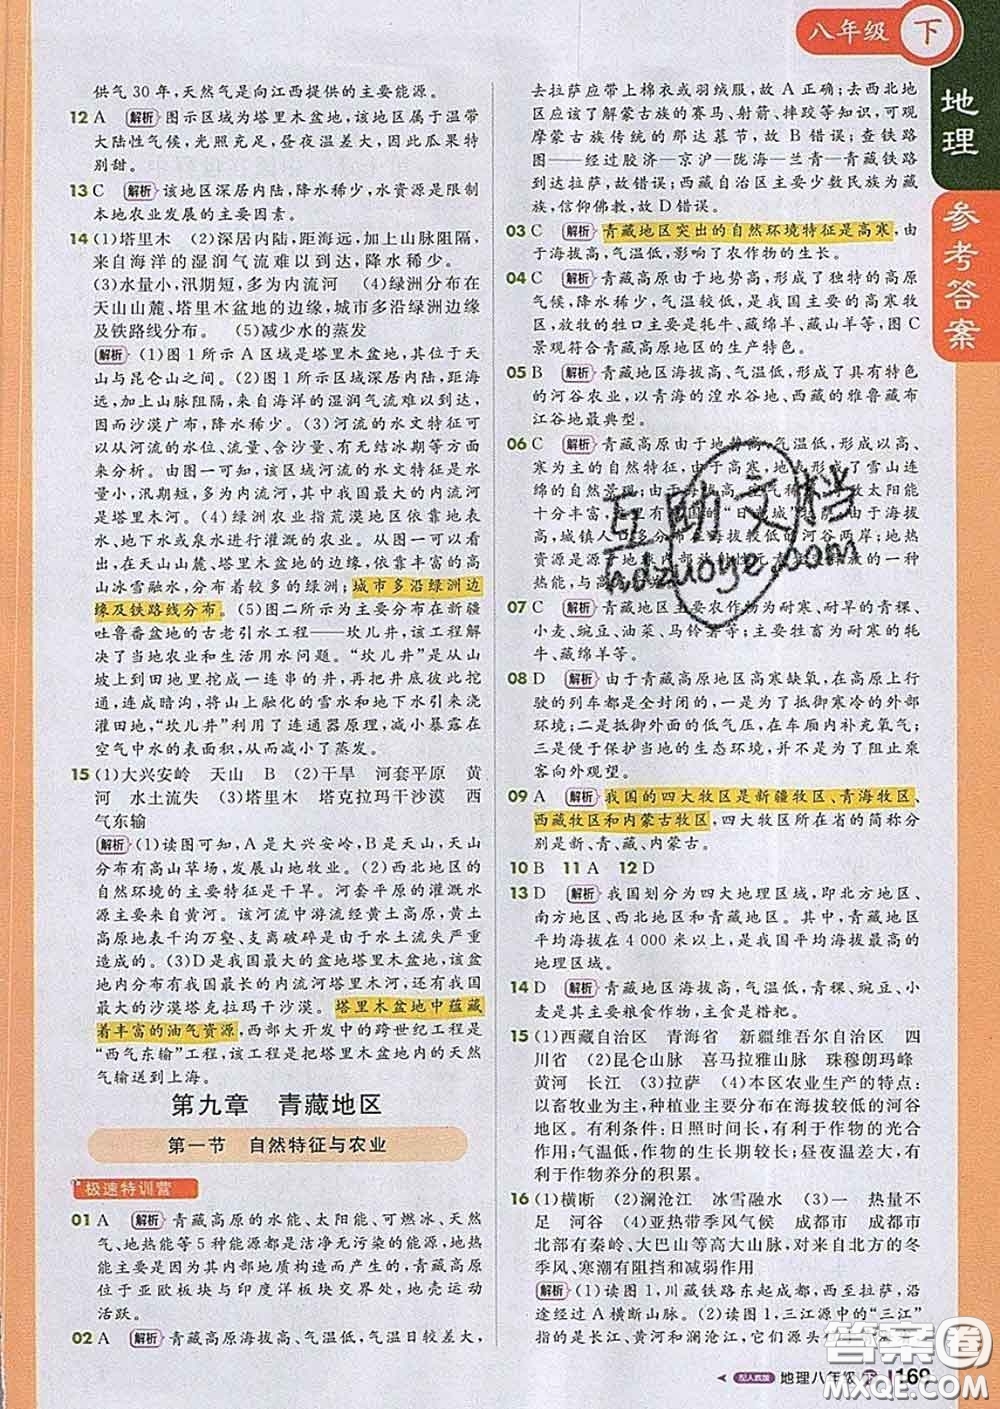 八年级 下
地理
参考答案
供气 30 年，天然气是向江西提供的主要能源。
12 A 解析 图示区域为塔里木盆地，该地区属于温带
大陆性气候，光照充足，昼夜温差大，因此瓜果特
别甜。
13 C 解析 该地区深居内陆，降水稀少，水资源是限制
本地农业发展的主要因素。
14 (1)塔里木 (2)深居内陆，距海远，加上山脉阻隔，
来自海洋的湿润气流难以到达，降水稀少。
(3)水量小，汛期短，多为内流河 (4)绿洲分布在
天山山麓、塔里木盆地的边缘，城市多沿绿洲边缘
及铁路线分布。 (5)减少水的蒸发
解析 (1)图 1 所示 A 区域是塔里木盆地，其位于天
山与昆仑山之间。(2)图 1 所示区域深居内陆，距海
远，加上山脉阻隔，来自海洋的湿润气流难以到达，
因而沙漠广布，降水稀少。(3)河流的水文特征可
以从河流的水位、流量、含沙量、有无结冰期等方面
来分析。由图一可知，该区域河流的水文特征是水
量小，汛期短，多为内流河，其中我国最大的内流河
是塔里木河。(4)绿洲农业指荒漠地区依靠地表
水、地下水或泉水进行灌溉的农业。从图一可以看
出，在天山山麓、塔里木盆地的边缘，依靠丰富的高
山冰雪融水，分布着较多的绿洲；城市多沿绿洲边
缘及铁路线分布。(5)图二所示为主要分布在新疆
吐鲁番盆地的古老引水工程——坎儿井，该工程解决
了当地农业和生活用水问题。“坎儿井”是从山
坡上到田地里挖成一连串的井，再把井底彼此挖
通，连成暗沟，将山上融化的雪水和地下水引来浇
灌田地，“坎儿井”利用了连通器原理，减小暴露在
空气中水的表面积，从而减小了蒸发。
15 (1)大兴安岭 天山 B (2)干旱 河套平原 黄
河 水土流失 (3)塔里木 塔克拉玛干沙漠 西
气东输
解析 (1)读图可知，A 是大兴安岭，B 是天山，天山
分布有高山草场，发展山地牧业。(2)西北地区的
自然环境的主要特征是干旱。河套平原的灌溉水
源主要来自黄河。该河流中游流经黄土高原，黄土
高原地表千沟万壑、支离破碎是由于水土流失严重
造成的。(3)D 是我国最大的内陆盆地塔里木盆地，该盆
地内分布有我国最长的内流河塔里木河，还有我国
最大的沙漠塔克拉玛干沙漠。塔里木盆地中蕴藏
着丰富的油气资源，西部大开发中的跨世纪工程是
“西气东输”工程，该工程是把塔里木盆地内的天然
气输送到上海。
第九章 青藏地区
第一节 自然特征与农业
极速特训营
01 A 解析 青藏高原的水能、太阳能、可燃冰、天然
气、地热能等 5 种能源都是洁净无污染的能源，地
热能也是因为其内部地质构造而产生的，青藏高原
位于亚欧板块与印度洋板块交界处，地壳运动
活跃。
02 A 解析 青藏高原海拔高、气温低，气温日较差大，
去拉萨应带上棉衣或羽绒服，故 A 正确；去西北地
区可以了解蒙古族的赛马、射箭、摔跤等习俗，可观
摩蒙古族传统的那达慕节，故 B 错误；查铁路
图——经过胶济—京沪—陇海—兰青—青藏铁路
到达拉萨，故 C 错误；西藏自治区主要少数民族为藏
族，信仰佛教，故 D 错误。
03 C 解析 青藏地区突出的自然环境特征是高寒，由
于海拔高，气温低，影响了农作物的生长。
04 C 解析 青藏高原由于地势高，形成了独特的高原
气候，降水稀少，气温较低，是我国主要的高寒牧
区，放牧的牲口主要是牦牛、藏绵羊、藏山羊等，图 C
景观符合青藏高原地区的生产特色。
05 B 解析 青藏地区海拔高、气温低，形成了具有特色
的河谷农业，以青海的湟水谷地、西藏的雅鲁藏布
江谷地最典型。
06 C 解析 青藏高原由于地势高，气温低，形成以高、
寒为主的自然特征，由于高寒，地表上形成了雪山连
07 C 解析 青藏地区主要农作物为耐寒、耐旱的青稞、
小麦、豌豆、油菜、马铃薯等；主要牲畜为耐寒的牦
牛、藏绵羊等。
08 D 解析 青藏高原地区高寒缺氧，在高原上行
驶的列车都是全封闭的，一是为了抵御寒冷的外部
环境；二是抵御外面的低气压，在车厢内补充氧气；
三是便于保护当地的生态环境，并不是为了阻止乘
客向外观望。
09 A 解析 我国的四大牧区是新疆牧区、青海牧区、
西藏牧区和内蒙古牧区，四大牧区所在省的简称分
别是新、青、藏、内蒙古。
10 B 11 A 12 D
13 D 解析 我国划分为四大地理区域，即北方地区、
南方地区、西北地区和青藏地区。其中，青藏地区
平均海拔在 4 000 米以上，是我国平均海拔最高的
地理区域。
14 D 解析 青藏地区海拔高，气温低，青稞、小
麦是其主要粮食作物，主食是糌粑。
15 (1)西藏自治区 青海省 新疆维吾尔自治区 四
川省 (2)昆仑山脉 喜马拉雅山脉 珠穆朗玛峰
黄河 长江 (3)拉萨 (4)本区农业生产的特点：
以畜牧业为主，种植业主要分布在海拔较低的河谷
地区。有利条件：日照时间长，太阳辐射强，昼夜温
差大，农作物的光合作用强，呼吸作用弱，有
利于作物养分的积累。
16 (1)横断 (2)澜沧江 冰雪融水 (3)一 热量不
足 河谷 (4)亚热带季风气候 成都市 成都市
北部有秦岭、大巴山等高大山脉，对来自北方的冬
季风、寒潮有阻挡和减弱作用
解析 (1)读图 1，川藏铁路东起成都，西至拉萨，沿
途经过 A 横断山脉。(2)读图 1，三江源中的“三江”
指的是长江、黄河和澜沧江，它们源头
互助文档
hdzuoye.com
答案圈
MXQE.COM
配人教版 地理八年级 下 169